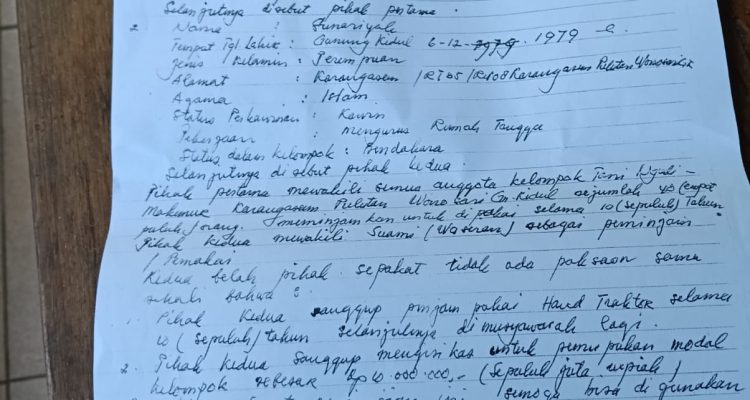 Selanjutnya disebut pihak pertama.
2. Nama : Sunariyah
Tempat Tgl Lahir : Gunung Kidul 6-12- 1979
Jenis Kelamin : Perempuan
Alamat : Karangasem /RT05/R108 Karangasem Pulutan Wonosari
Agama : Islam
Status Perkawinan : Kawin
Pekerjaan : Mengurus Rumah Tangga
Status dalam kelompok : Bendahara
Selanjutnya di sebut pihak kedua.
Pihak pertama mewakili semua anggota kelompok Tani
Makmur Karangasem Pulutan Wonosari Gn Kidul sejumlah 40 (empat
puluh) orang. meminjamkan untuk di pakai selama 10 (sepuluh) tahun
Pihak Kedua mewakili Suami (Waseran) sebagai peminjam
/ Pemakai
Kedua belah pihak sepakat tidak ada paksaan sama
sekali bahwa :
1. Pihak Kedua sanggup pinjam pakai Hand Traktor selama
10 (sepuluh) tahun selanjutnya di musyawarah lagi.
2. Pihak Kedua sanggup mengirikas untuk pemupukan modal
kelompok sebesar Rp 10.000.000,- (sepuluh juta rupiah)
semoga bisa di gunakan